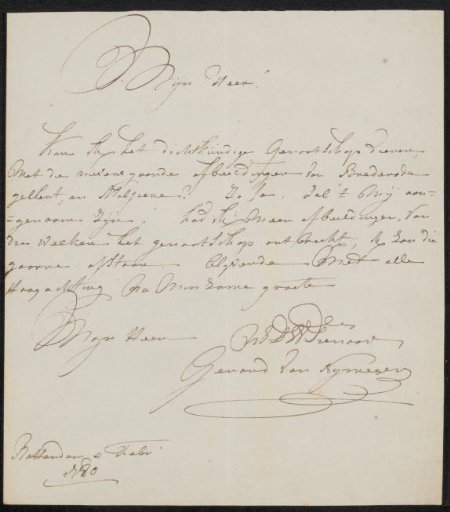 Mijn Heer!
Kan ik het dichtkundige Genootschap dienen
Met de nevensgaande afbeeldingen van Brederode
gelkent, en Molzeene? Zo Ja. Zal 't Mij aan-
-genaam zijn. had ik Meer afbeeldingen, van
die welken het genootschap ontbreekt, ik zou die
gaarne afstaan. blyvende Met alle
Hoogachting Na Minzaame groete
Mijn Heer
UEDWDienaar
Gerard Van Nymegen
Rotterdam 4 Febr
1780